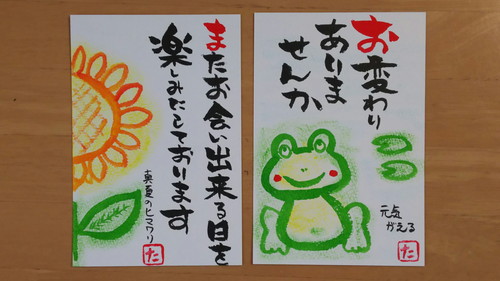 またお会い出来る日を
楽しみにしております
真夏のヒマワリ
た
お変わり
ありま
せんか
元気
がえる
た